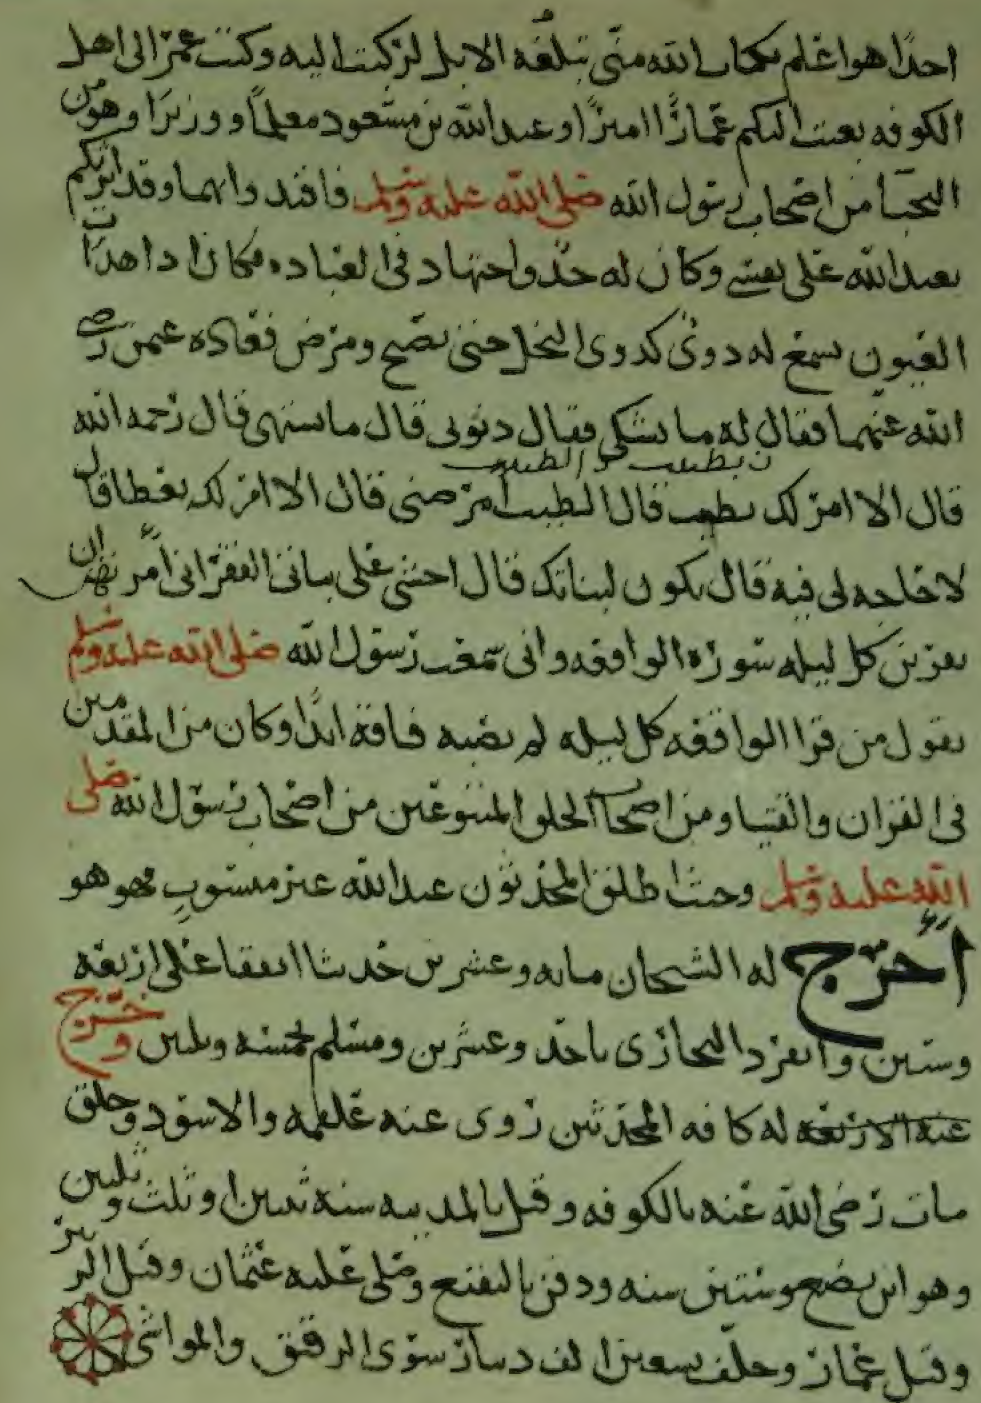 احدًا هو اعلم بكتاب الله منّي تبلغه الابل لركبت اليه وكتب عمر الى اهل
الكوفه بعثت اليكم عمارًا اميرًا وعبدالله بن مسعود معلمًا ووزيرًا وهو من
النجبا من اصحاب رسول الله صلى الله عليه وسلم فاقتدوا بهما وقد اثرتكم
بعبدالله على نفسي وكان له جدّ واجتهاد في العباده فكان اذا هدات
العيون يسمع له دوي كدوي النحل حتى يصبح ومرض فعاده عمر رضي
الله عنهما فقال له ما تشتكي فقال ذنوبي قال ما تشتهي قال رحمه الله
ن بطبيب الطبيب
قال الا امر لك بطبيب قال الطبيب امرضني قال الا امر لك بعطا قال
لا حاجه لي فيه قال يكون لبناتك قال اخشى على بناتي الفقر اني امرتهن ان
يقرين كل ليله سورة الواقعه واني سمعت رسول الله صلى الله عليه وسلم
يقول من قرا الواقعه كل ليله لم تصبه فاقة ابدًا وكان من المقدمين
في القران والفتيا ومن اصحاب الحلق المتبوعين من اصحاب رسول الله صلى
الله عليه وسلم وحيث اطلق المحدثون عبدالله غير منسوب فهو هو
اخرّج له الشيخان مايه وعشرين حديثا اتفقا على اربعه
وستين وانفرد البخاري باحد وعشرين ومسلم بخمسه وثلثين وخرّج
عنه الاربعه له كافه المحدثين روى عنه علقمه والاسود وخلق
مات رضي الله عنه بالكوفه وقيل بالمدينه سنه ثنتين او ثلث وثلثين
وهو ابن بضع وستين سنه ودفن بالبقيع وصلى عليه عثمان وقيل الزبير
وقيل عمار وخلف تسعين الف دينار سوى الرقيق والمواشي